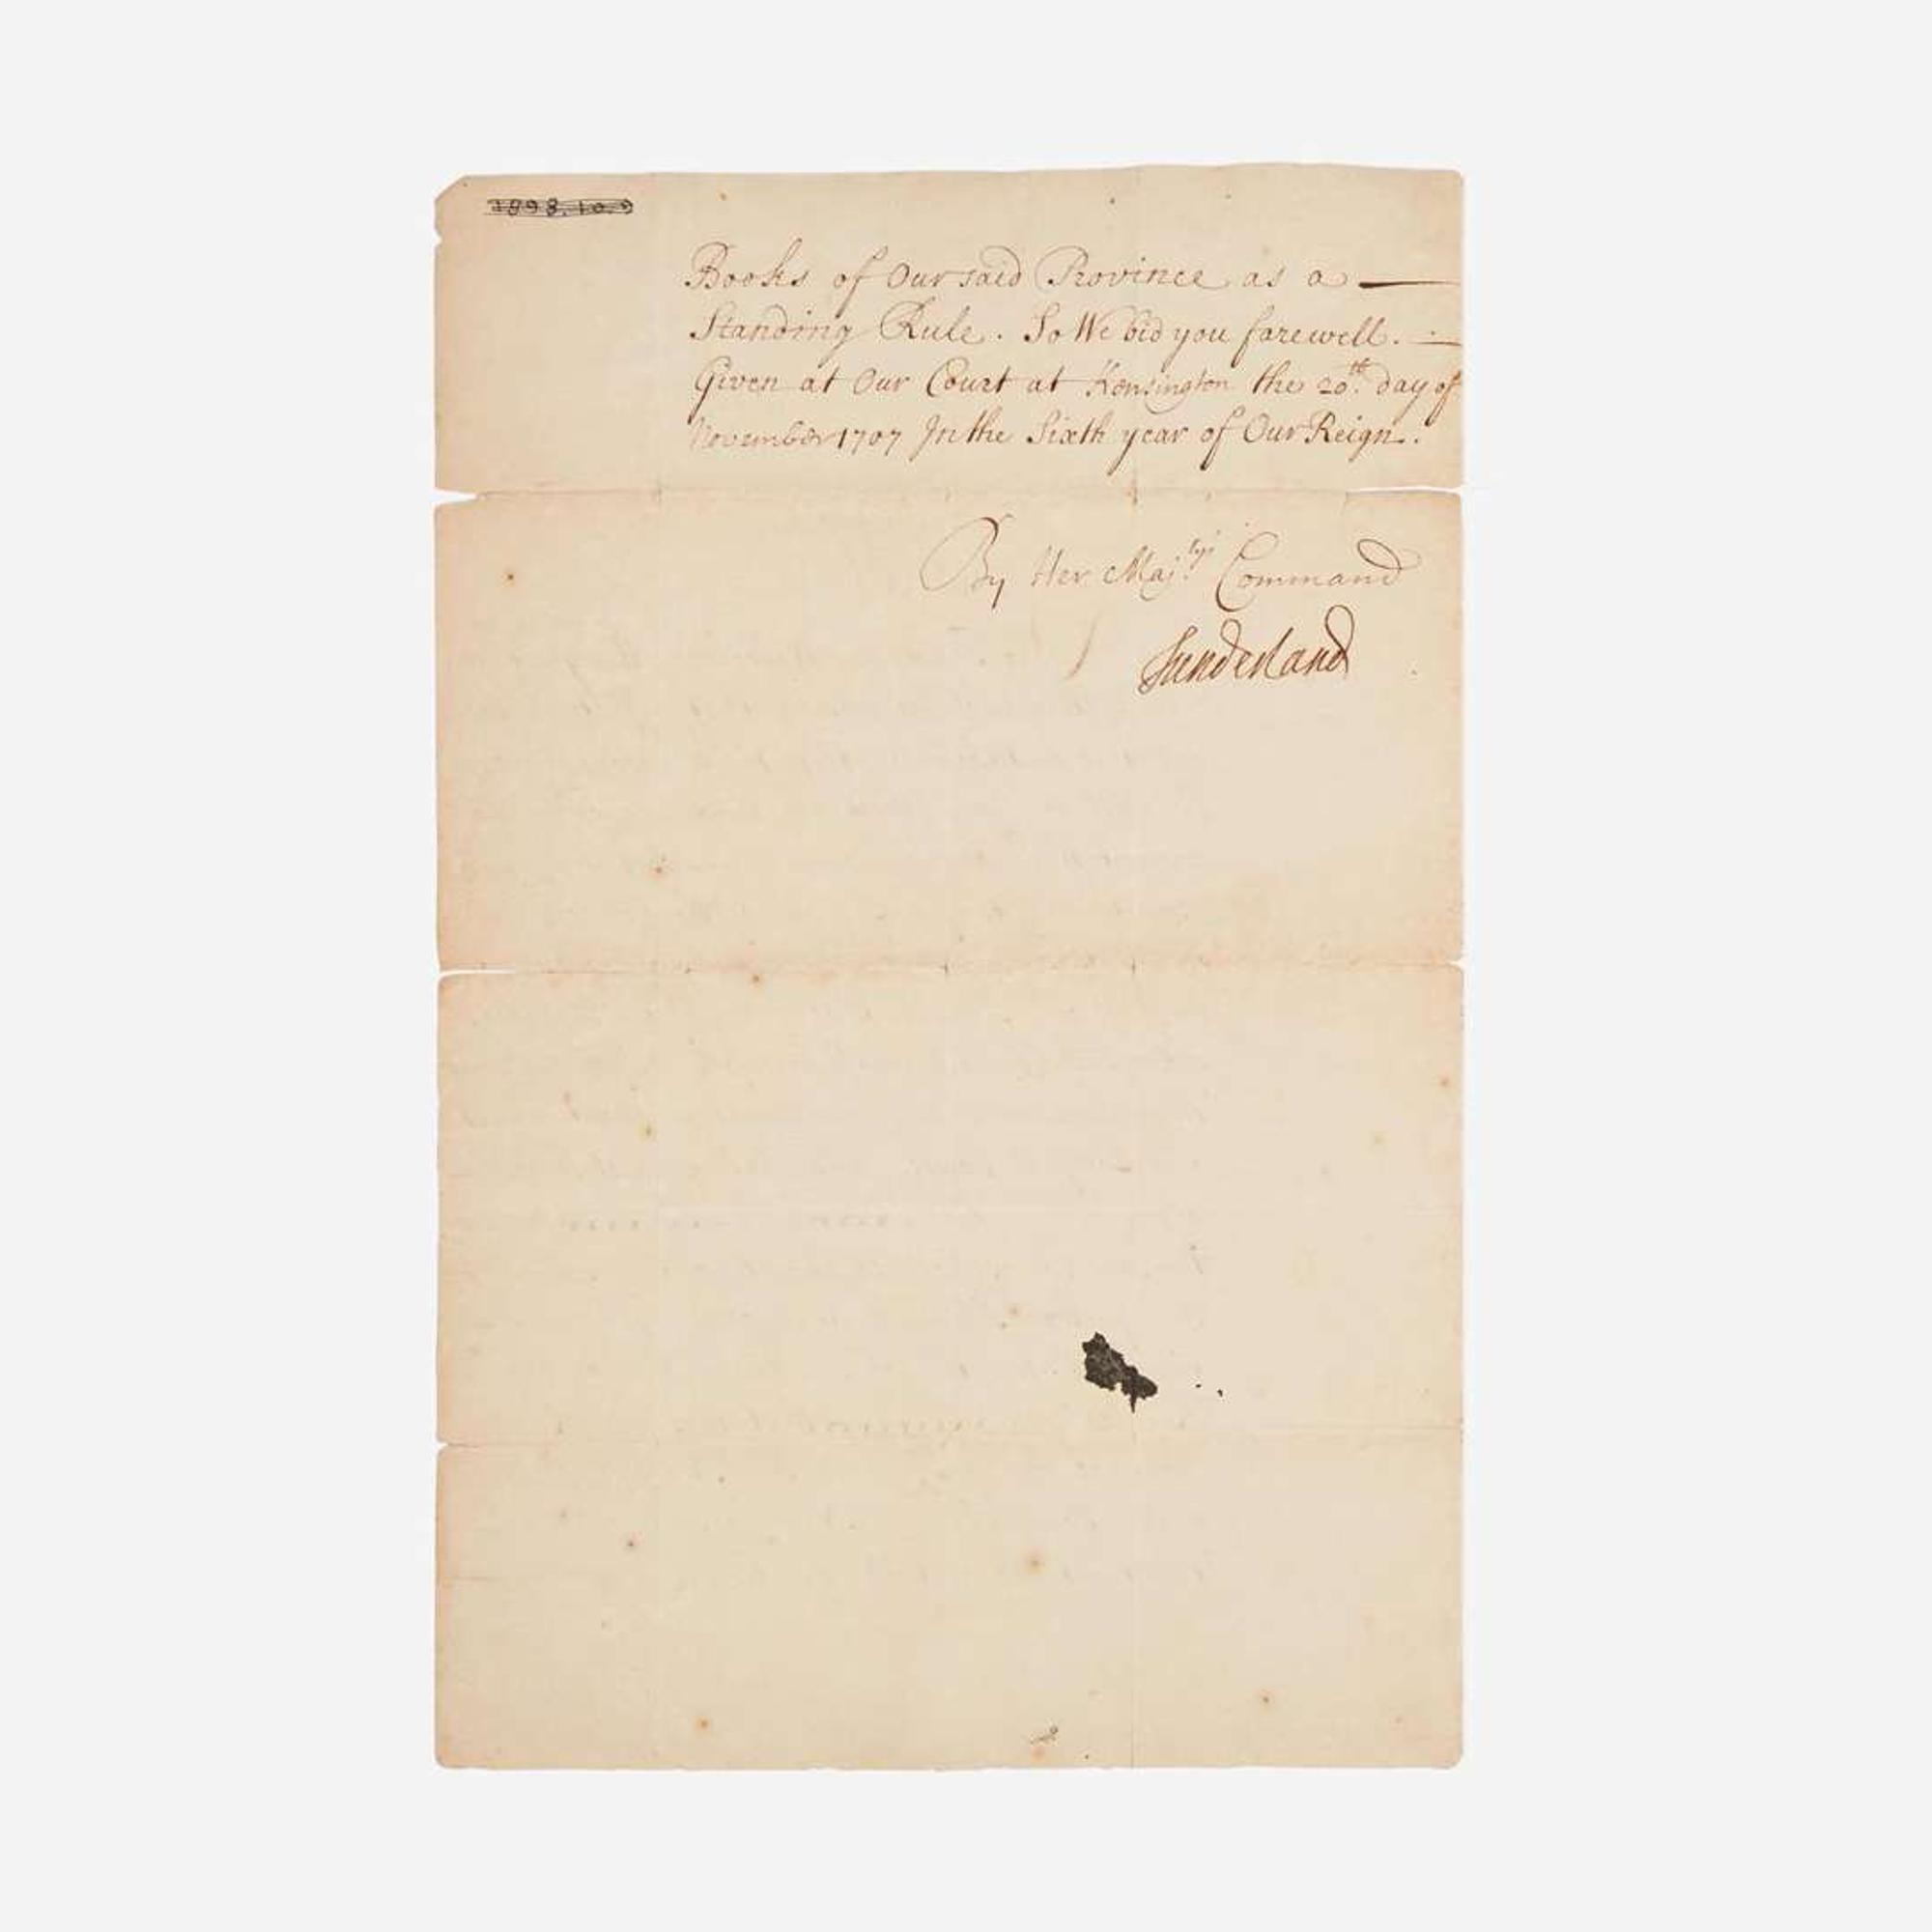 1898.10.9
Books of Our said Province as a
Standing Rule. So We bid you farewell.
Given at Our Court at Kensington the 20th day of
November 1707 In the Sixth year of Our Reign.
By Her Maj.tys Command
Sunderland